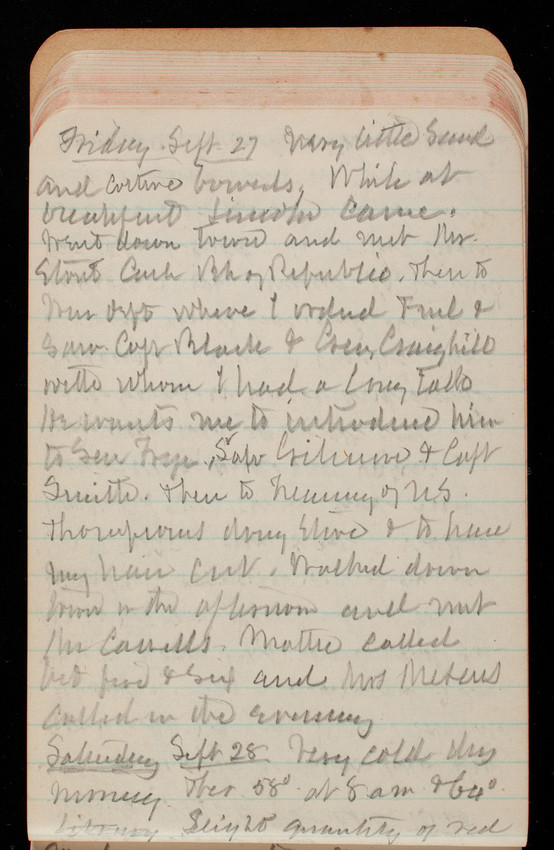 Friday Sept 27 Very little Sand
and bowels, While at
breakfast Lincoln came.
Went down town and met Mr.
Stout Cash Bk of Republic. Then to
War Dept where I ordered Fuel &
Saw Capt Black & Craighill
with whom I had a long talk
He wants me to introduce him
to Gen , Saw & Capt
Smith. Then to Treasury of U.S.
Thompsons drug Store & to have
my hair cut. Walked down
town in the afternoon and met
Mr . Mattie called
bet five & Six and Mrs
called in the evening
Saturday Sept 28 Very cold dry
morning Ther 58° at 8 am & 64°.
Slight quantity of red